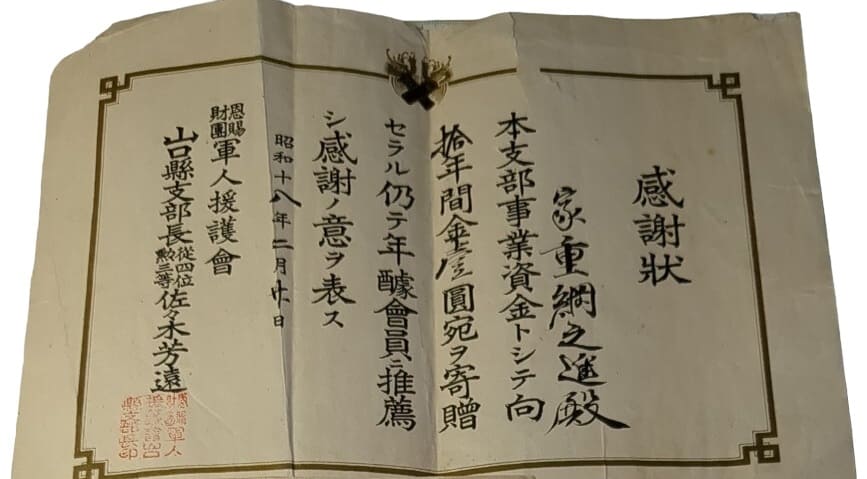 感謝狀
家重綱之進殿
本支部事業資金トシテ向
拾年間金壹圓宛ヲ寄贈
セラル仍テ年醵會員ニ推薦
シ感謝ノ意ヲ表ス
昭和十八年二月廿日
恩賜財團軍人援護會
山口縣支部長從四位勲三等佐々木芳遠
恩賜財團軍人援護會山口縣支部長印